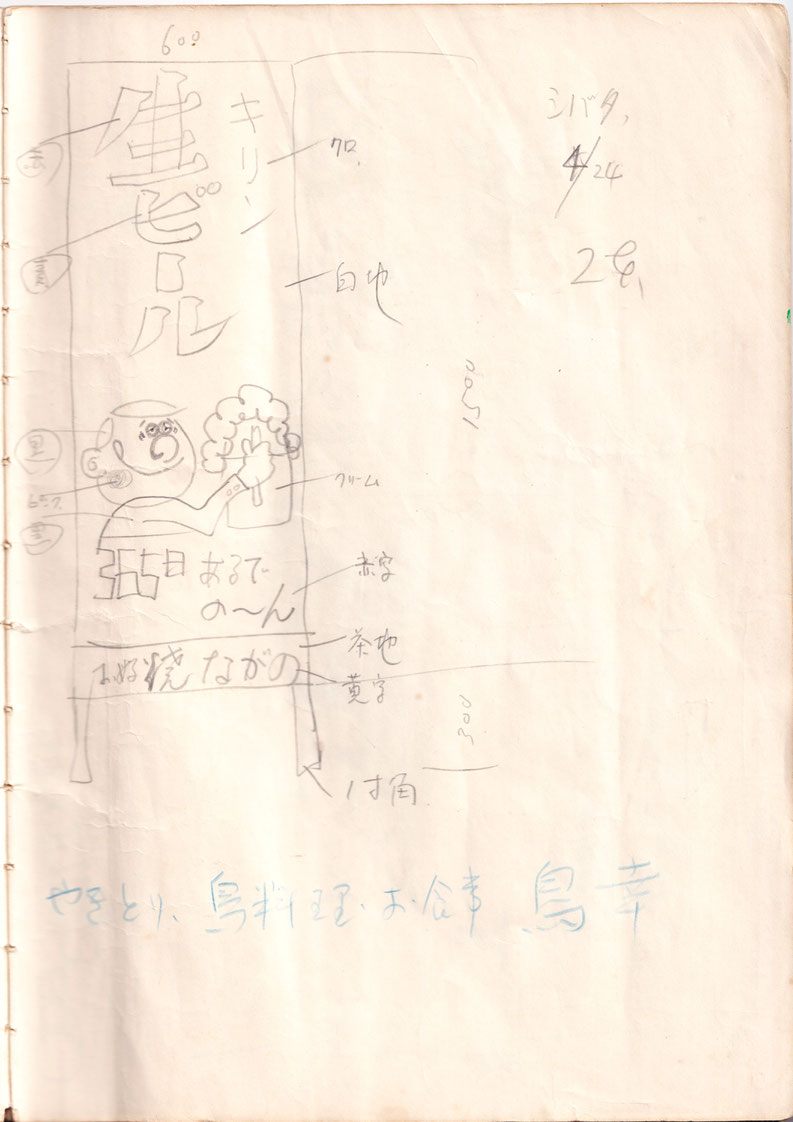 600
キリン
生ビール
クロ、
白地
クリーム
ピンク
365日あるで
の〜ん
赤字
茶地
お好焼ながの
黄字
1寸角
1500
300
シバタ、
4/24
やきとり、鳥料理、お食事 鳥幸